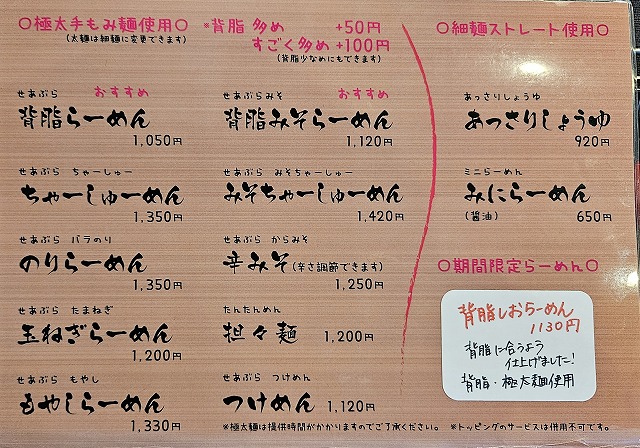 〇極太手もみ麺使用〇
(太麺は細麺に変更できます)
※背脂 多め +50円
すごく多め +100円
(背脂少なめにもできます)
せあぶら おすすめ
背脂らーめん
1,050円
せあぶら ちゃーしゅー
ちゃーしゅーめん
1,350円
せあぶら バラのり
のりらーめん
1,350円
せあぶら たまねぎ
玉ねぎらーめん
1,200円
せあぶら もやし
もやしらーめん
1,330円
せあぶらみそ おすすめ
背脂みそらーめん
1,120円
せあぶら みそちゃーしゅー
みそちゃーしゅーめん
1,420円
せあぶら からみそ
辛みそ(辛さ調節できます)
1,250円
たんたんめん
担々麺 1,200円
せあぶら つけめん
つけめん 1,120円
※極太麺は提供時間がかかりますのでご了承ください。 ※トッピングのサービスは併用不可です。
〇細麺ストレート使用〇
あっさりしょうゆ
あっさりしょうゆ
920円
ミニらーめん
みにらーめん
(醤油) 650円
〇期間限定らーめん〇
背脂しおらーめん
1130円
背脂に合うよう
仕上げました!
背脂・極太麺使用